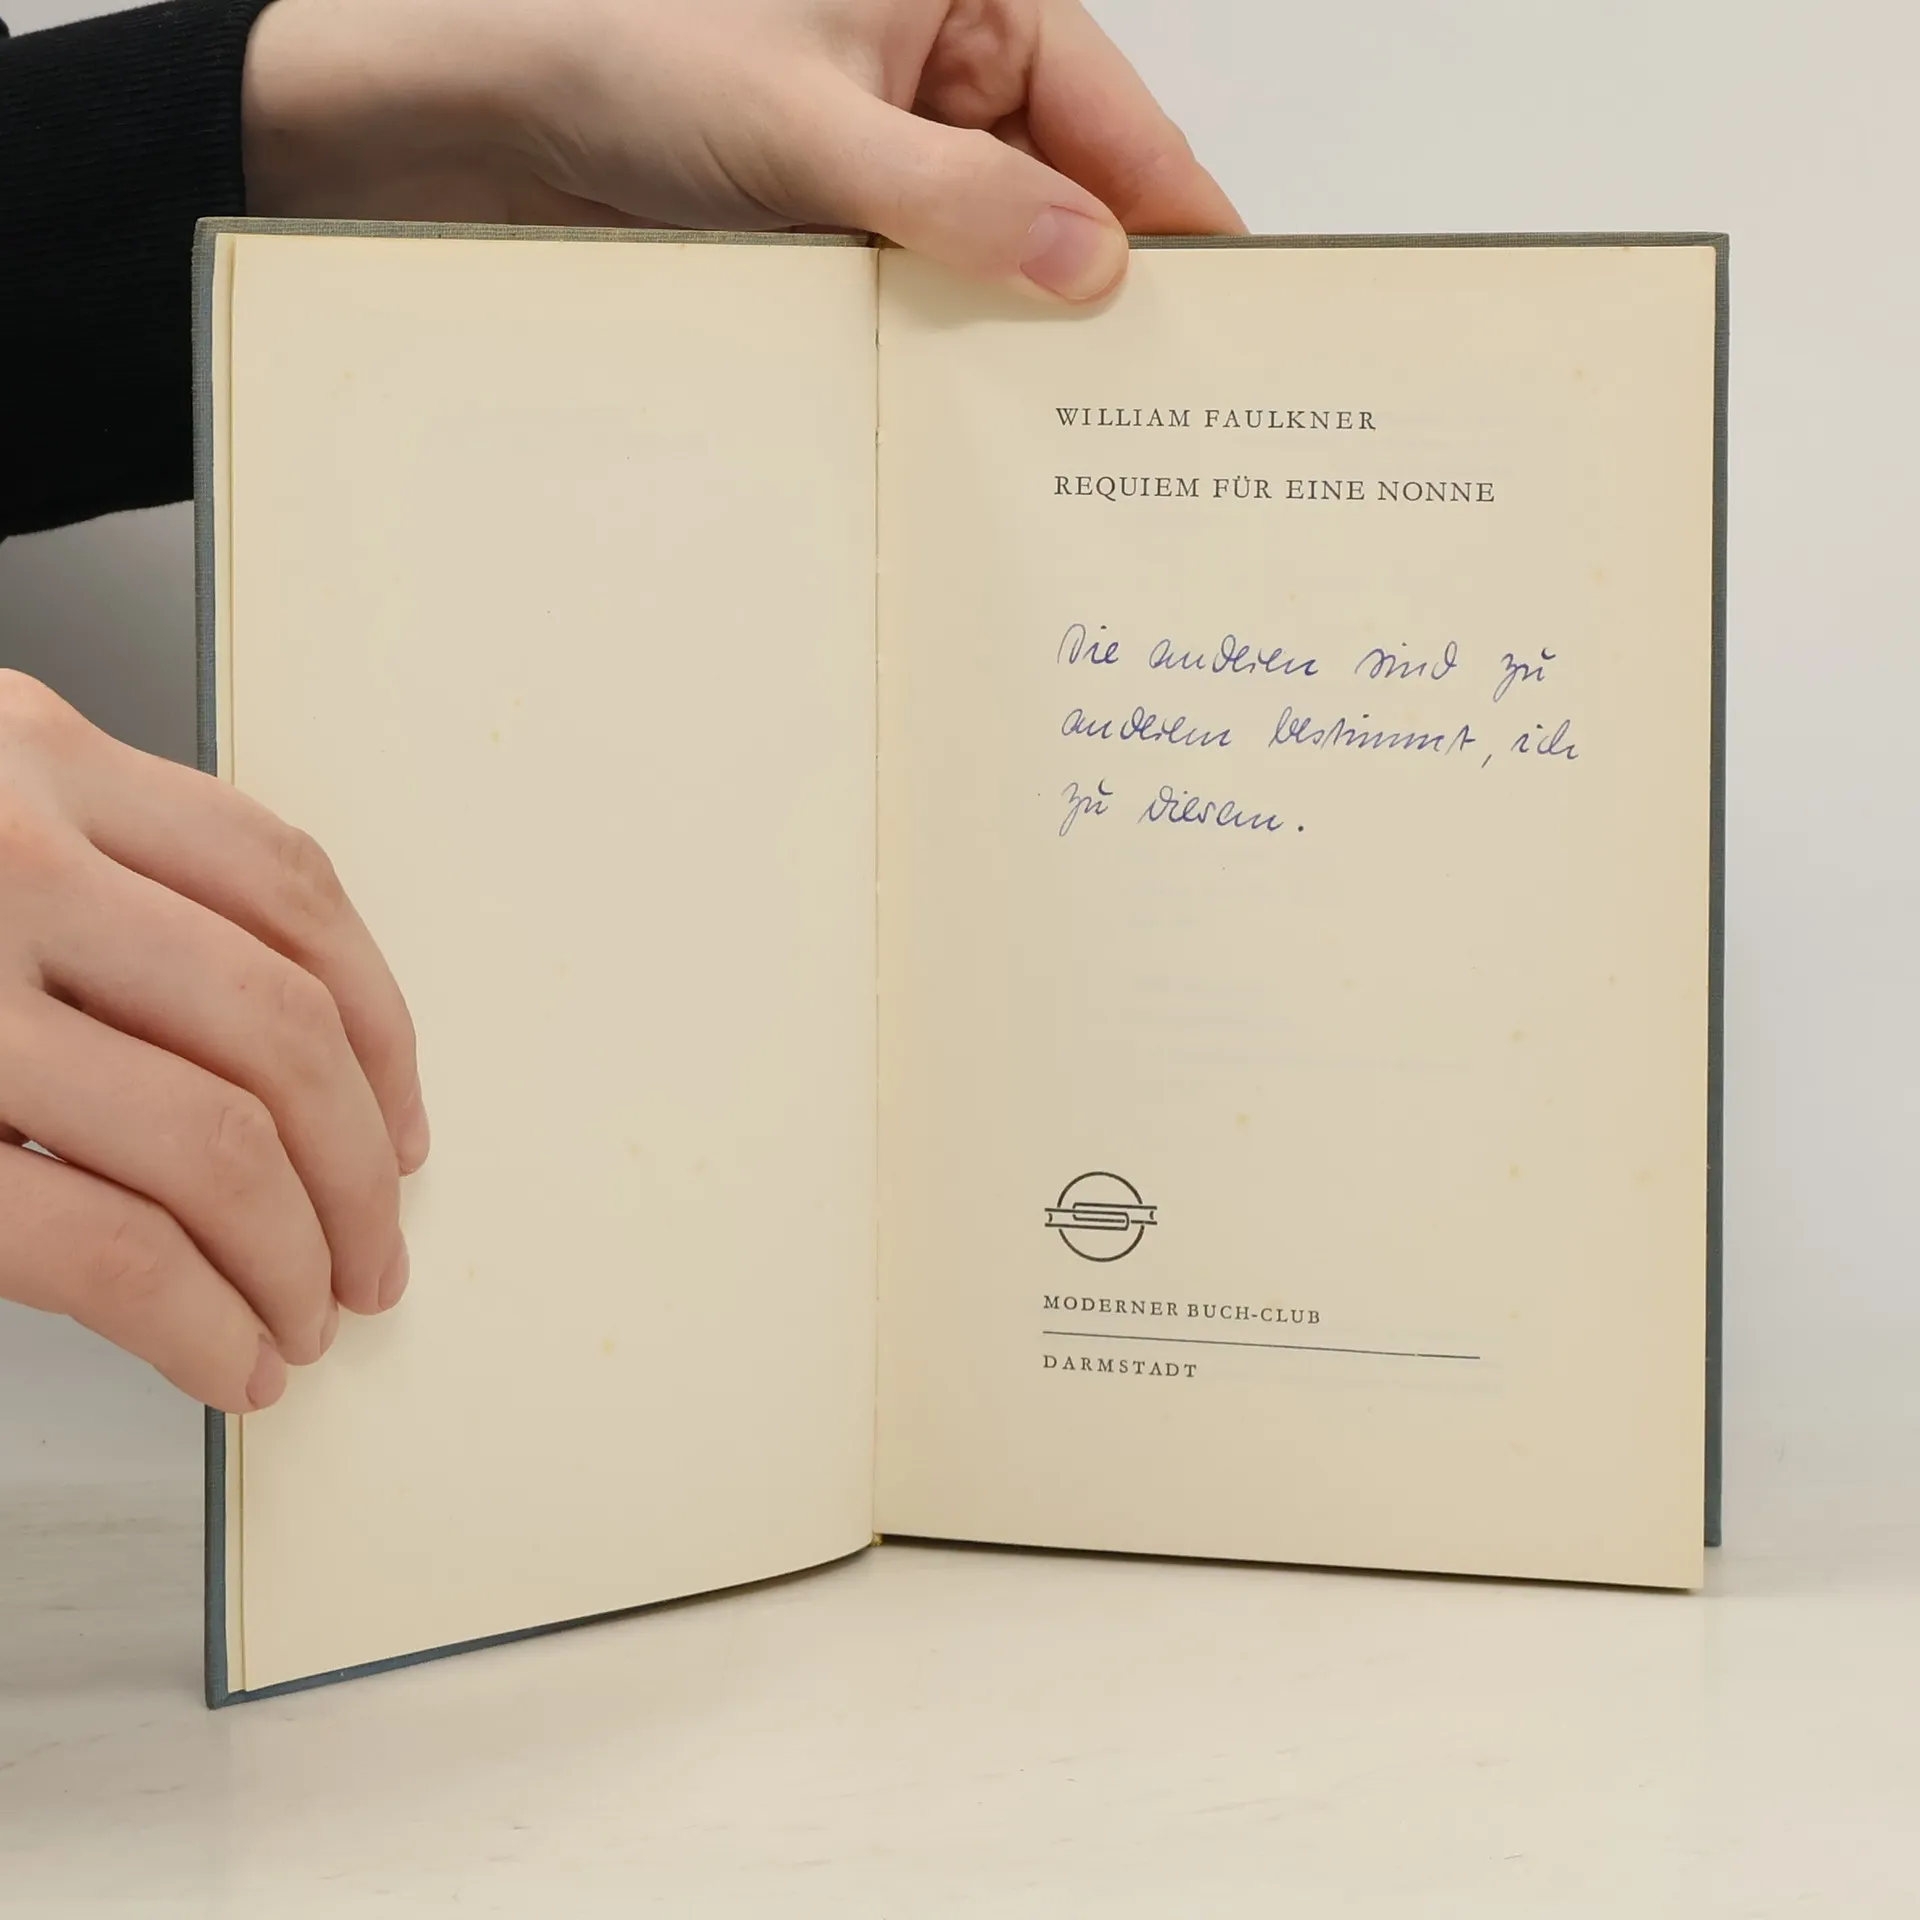 WILLIAM FAULKNER
REQUIEM FÜR EINE NONNE
Die anderen sind zu
anderem bestimmt, ich
zu diesem.
MODERNER BUCH-CLUB
DARMSTADT